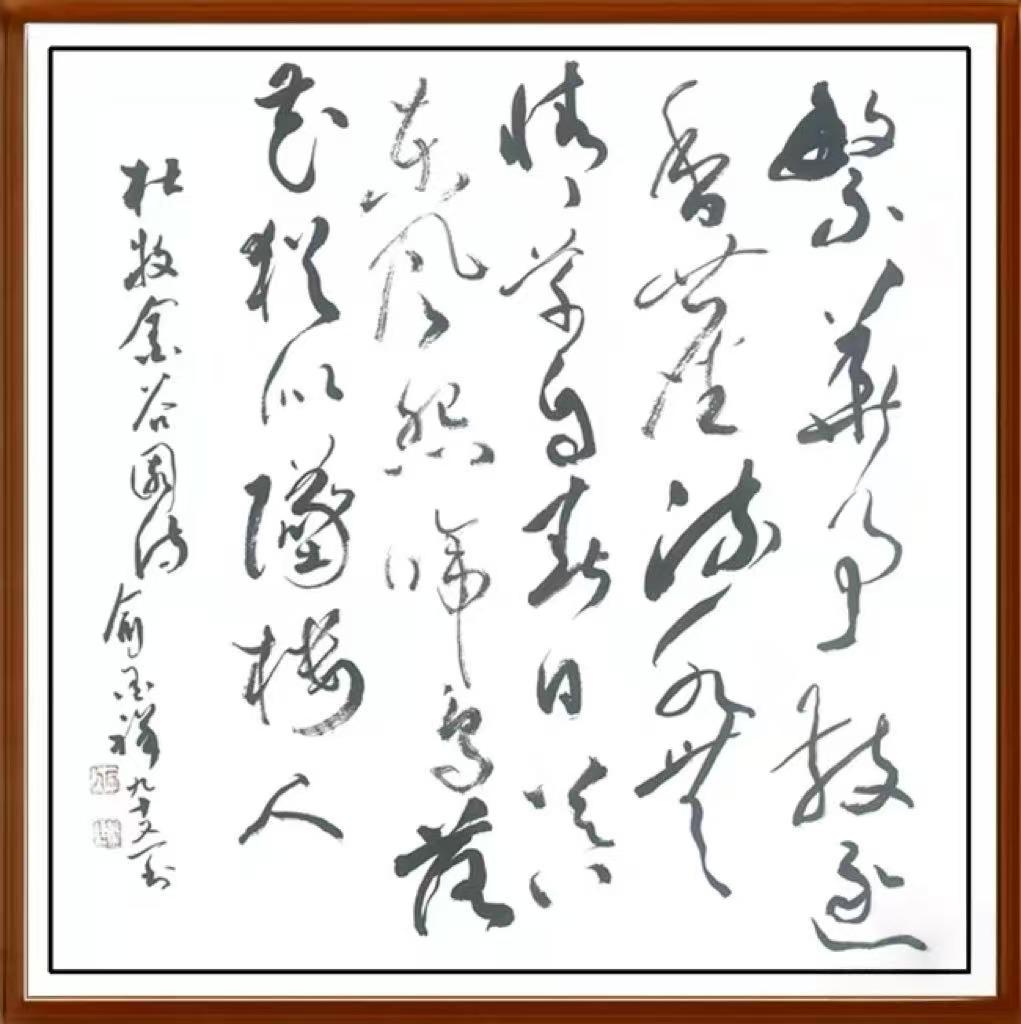 繁華事散逐
香塵流水無
情草自春日暮
東風怨啼鳥落
花猶似墜樓人
杜牧金谷園詩 俞祥九十又一書